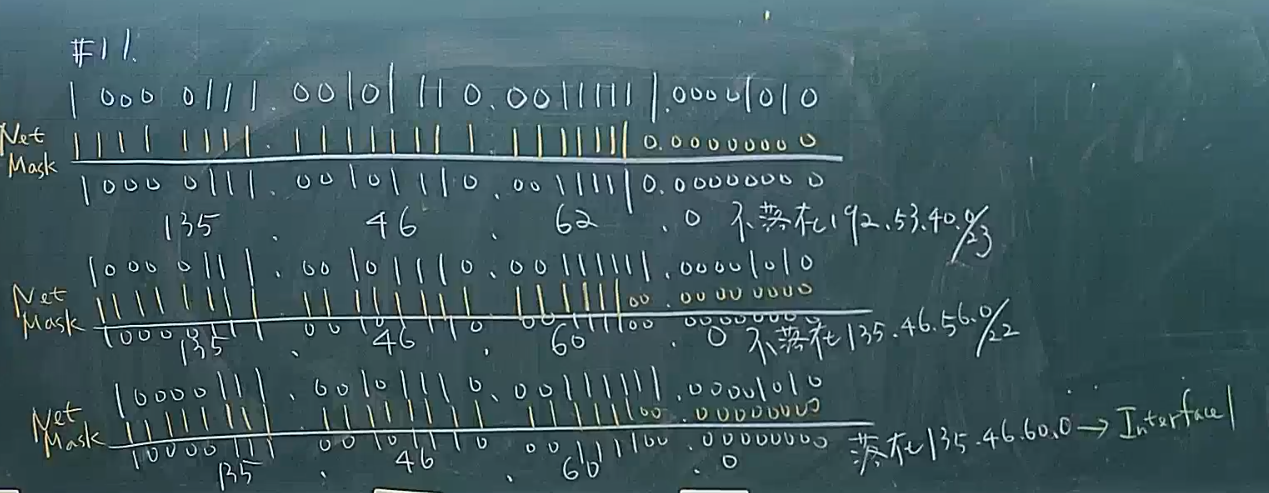 #11.
10000111.00101110.00111111.00001010
Net Mask 11111111.11111111.11111110.00000000
10000111.00101110.00111110.00000000
135.46.62.0 不落在192.53.40.0/23
10000111.00101110.00111111.00001010
Net Mask 11111111.11111111.11111100.00000000
10000111.00101110.00111100.00000000
135.46.60.0 不落在135.46.56.0/22
10000111.00101110.00111111.00001010
Net Mask 11111111.11111111.11111100.00000000
10000111.00101110.00111100.00000000
135.46.60.0 落在135.46.60.0→Interface1